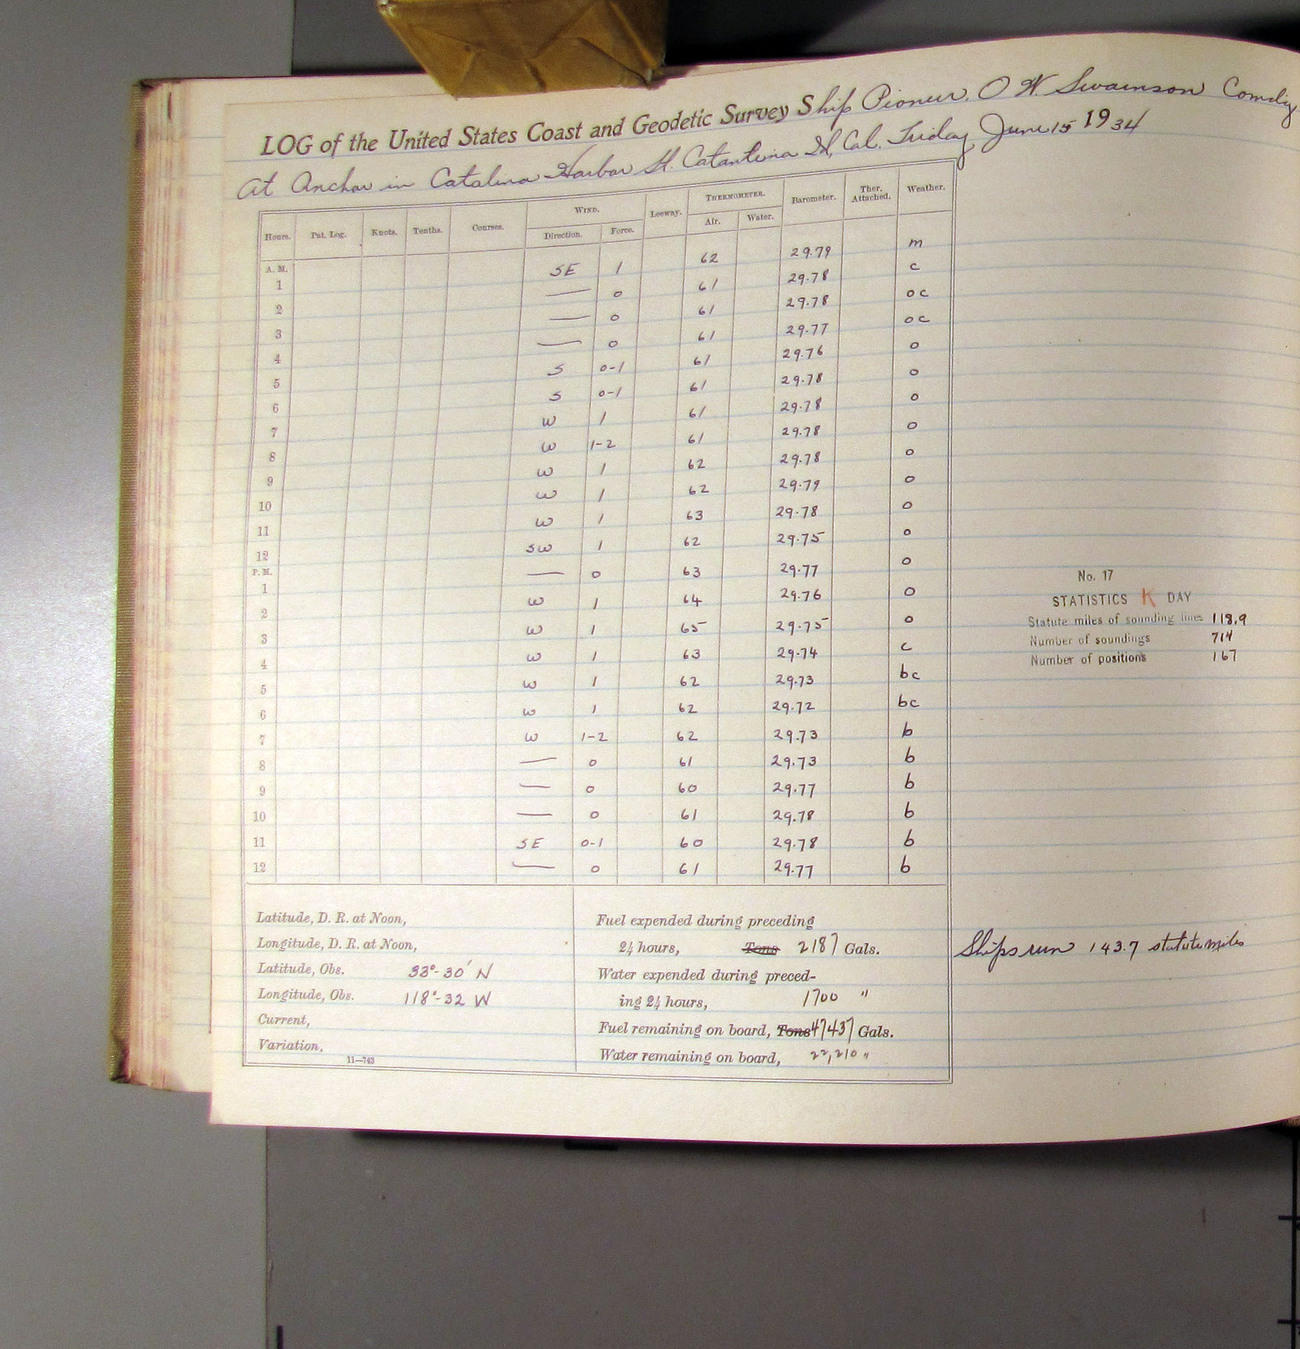 LOG of the United States Coast and Geodetic Survey Ship Pioneer, O W Swainson Comdg
At Anchor in Catalina Harbor St. Catantina Id, Cal. Friday June 15 1934
Hours. Pat. Log. Knots. Tenths. Courses. WIND. Leeway. THERMOMETER. Barometer. Ther. Attached. Weather.
Direction. Force. Air. Water.
A. M.
1 SE 1 62 29.79 m
2 — 0 61 29.78 c
3 — 0 61 29.78 oc
4 — 0 61 29.77 oc
5 S 0-1 61 29.76 o
6 S 0-1 61 29.78 o
7 W 1 61 29.78 o
8 W 1-2 61 29.78 o
9 W 1 62 29.78 o
10 W 1 62 29.79 o
11 W 1 63 29.78 o
12 SW 1 62 29.75 o
P. M.
1 — 0 63 29.77 o
2 W 1 64 29.76 o
3 W 1 65 29.75 o
4 W 1 63 29.74 c
5 W 1 62 29.73 bc
6 W 1 62 29.72 bc
7 W 1-2 62 29.73 b
8 — 0 61 29.73 b
9 — 0 60 29.77 b
10 — 0 61 29.78 b
11 SE 0-1 60 29.78 b
12 — 0 61 29.77 b
No. 17
STATISTICS K DAY
Statute miles of sounding lines 118.9
Number of soundings 714
Number of positions 167
Latitude, D. R. at Noon,
Longitude, D. R. at Noon,
Latitude, Obs. 33°-30' N
Longitude, Obs. 118°-32 W
Current,
Variation,
11—763
Fuel expended during preceding
24 hours, Tons 2187 Gals.
Water expended during preced-
ing 24 hours, 1700 "
Fuel remaining on board, Tons 47437 Gals.
Water remaining on board, 22,210 "
Ships run 143.7 statute miles